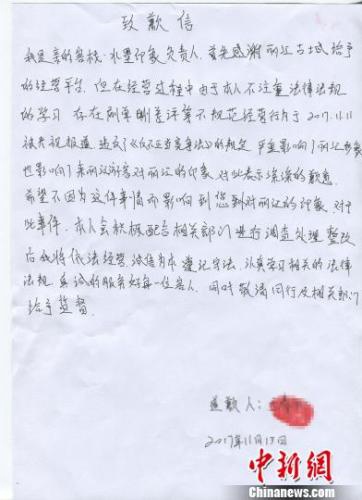 致歉信
我是亲的客栈·水墨印象负责人,首先感谢丽江古城给予
的经营平台,但在经营过程中由于本人不注重法律法规
的学习 存在刷单删差评等不规范经营行为于2017.11.11
被央视报道,违反了《反不正当竞争法》的规定,严重影响了丽江形象
也影响了来丽江游客对丽江的印象 对此表示深深的歉意
希望不因为这件事情而影响到您到对丽江的印象,对于
此事件,本人会积极配合相关部门进行调查处理 整改
后我将依法经营 诚信为本 遵纪守法,认真学习相关的法律
法规 真诚的服务好每一位客人,同时敬请同行及相关部门
给予监督.
道歉人:
2017年11月13日
中新网
Chinanews.com